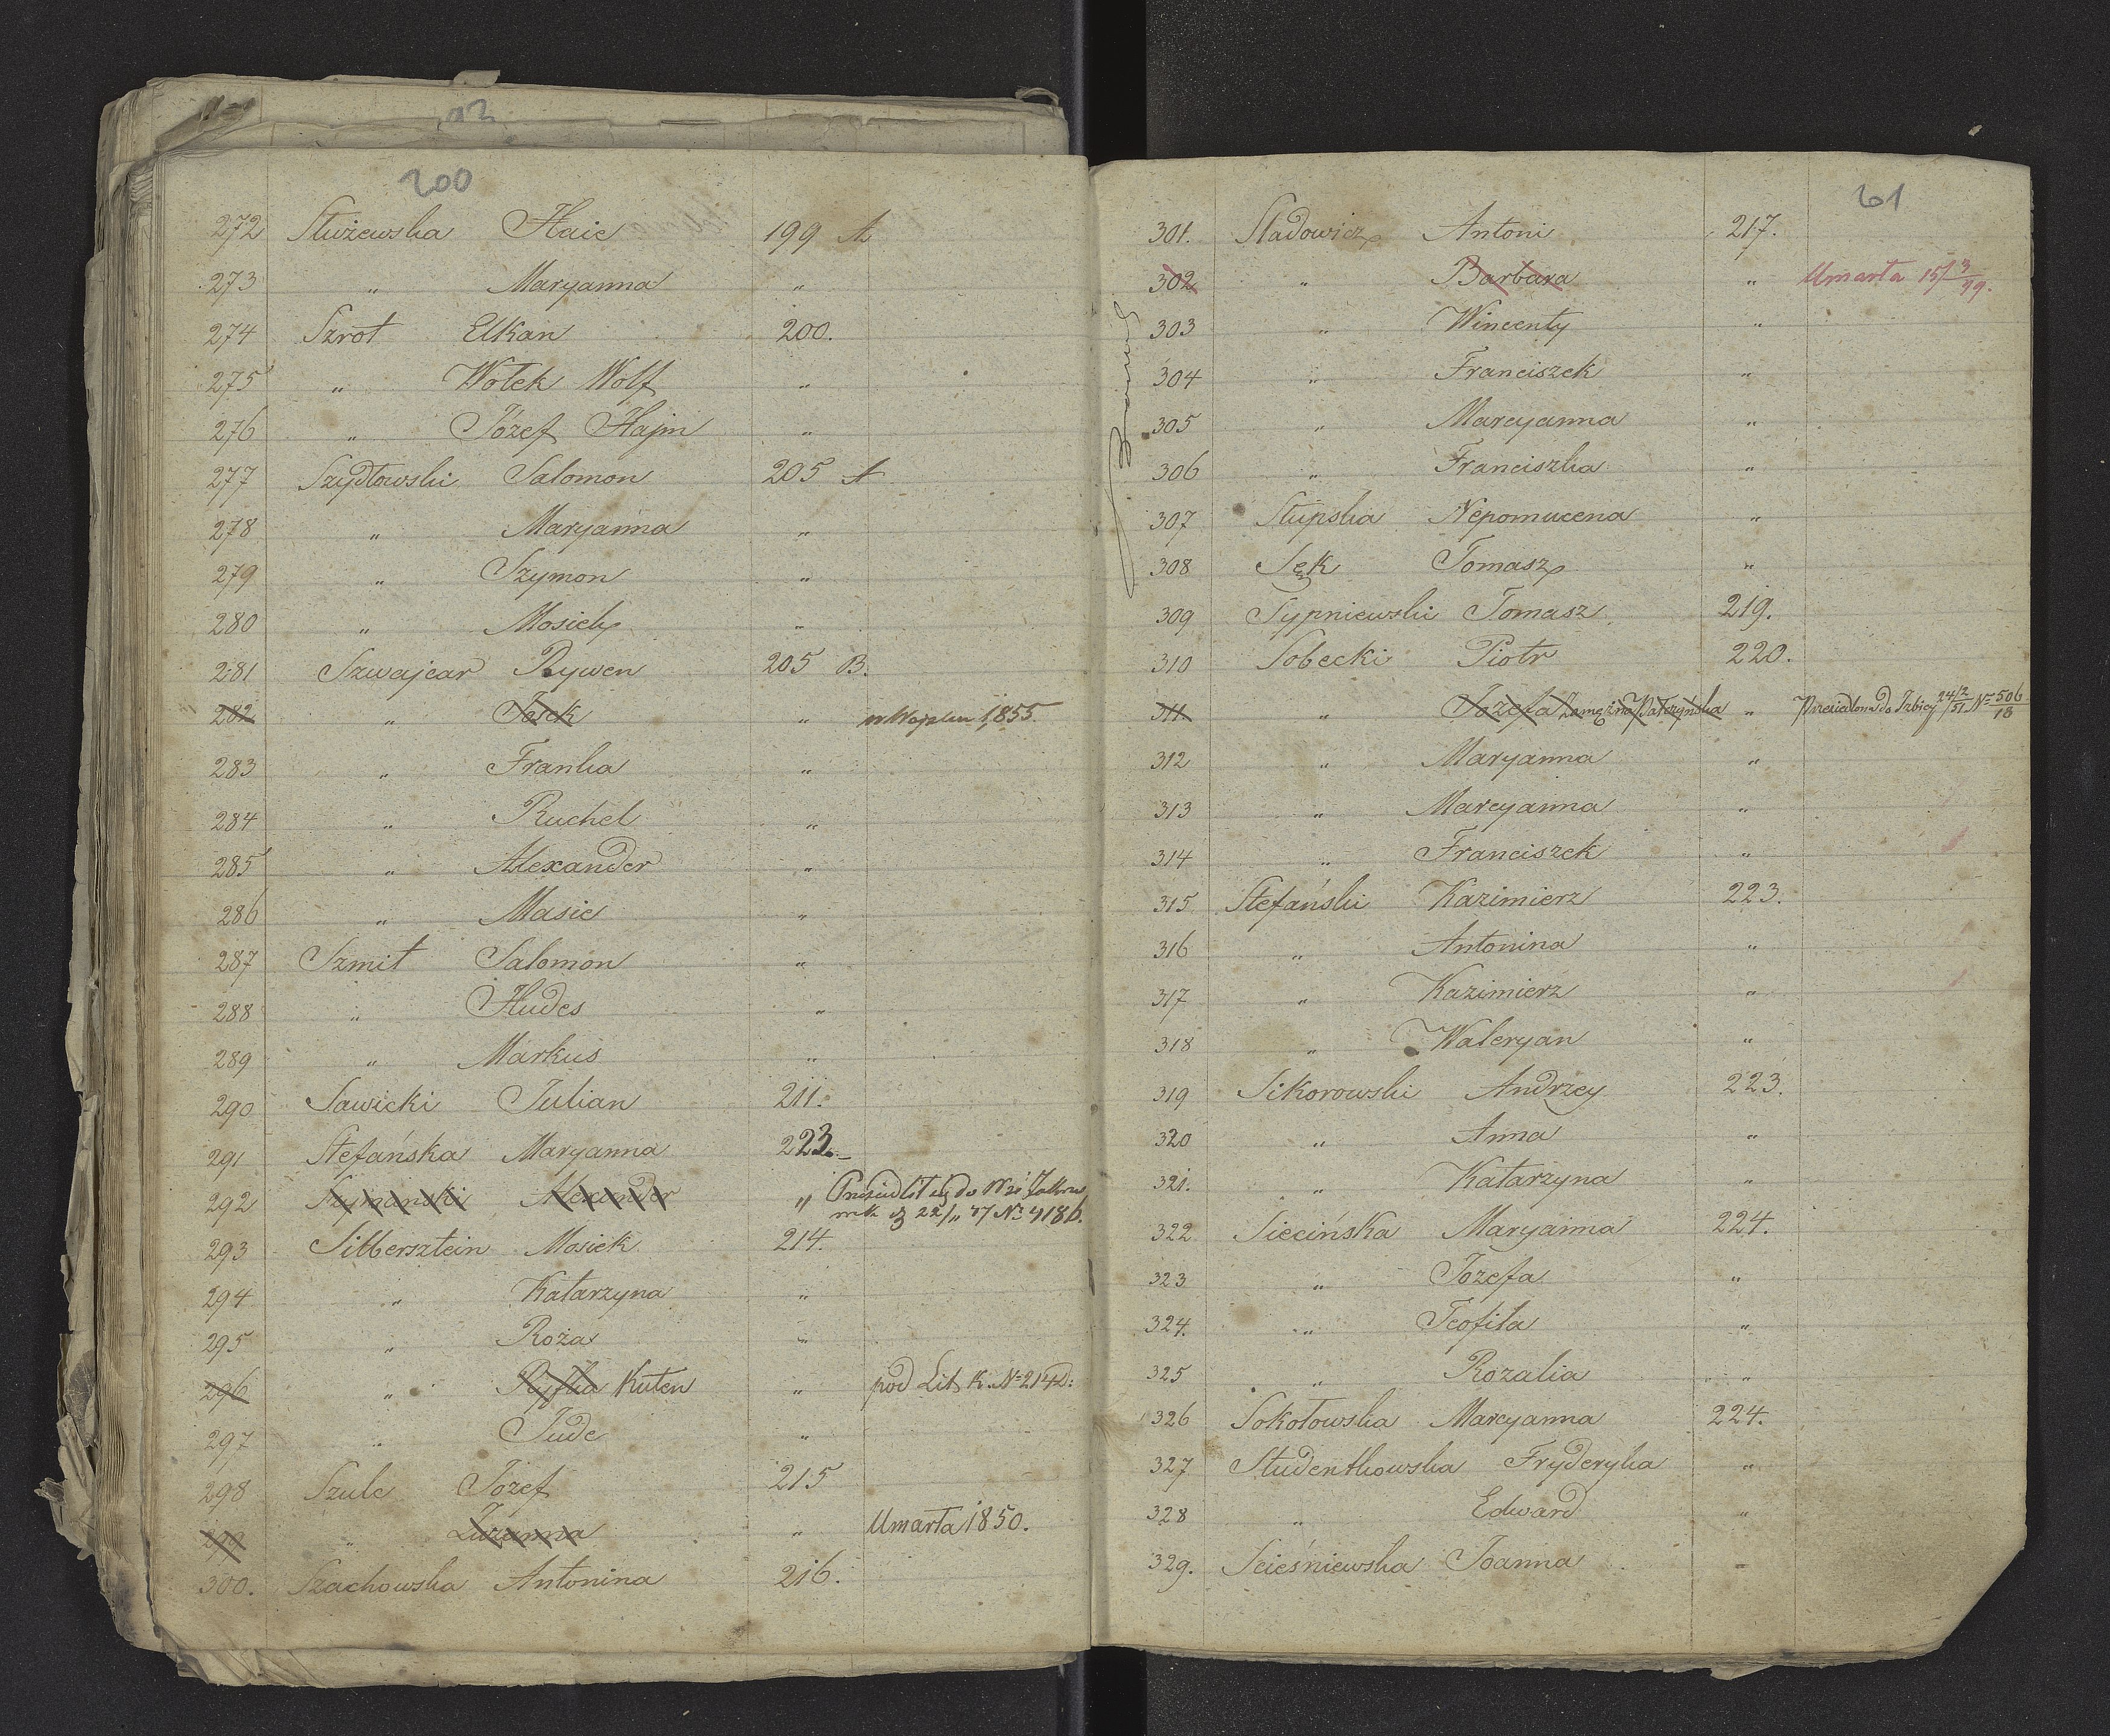 93
200
272 Służewska Haie 199 A
273 " Maryanna "
274 Szrot Elkan 200.
275 " Wolek Wolf "
276 " Józef Hajm "
277 Szydłowski Salomon 205 A
278 " Maryanna "
279 " Szymon "
280 " Mosiek "
281 Szwajcar Rywen 205 B.
282 " Josek " w Wojsku 1855
283 " Franka "
284 " Ruchel "
285 " Alexander "
286 " Masie "
287 Szmit Salomon "
288 " Hudes "
289 " Markus "
290 Sawicki Julian 211.
291 Stefańska Maryanna 223.
292 Szymański Alexander " Przesiedlił się do Wsi
22/11 47 No 4186.
293 Silbersztein Mosiek 214.
294 " Katarzyna "
295 " Roża "
296 " Ryfka Kuten " pod Lit. K. No 214 D:
297 " Jude "
298 Szulc Józef 215
299 " Zuzanna " Umarła 1850.
300. Szachowska Antonina 216.
201
301. Sladowicz Antoni 217.
302 " Barbara " Umarła 15/3 49.
303 " Wincenty "
304 " Franciszek "
305 " Marcyanna "
306 " Franciszka "
307 Słupska Nepomucena "
308 Sęk Tomasz "
309 Sypniewski Tomasz 219.
310 Sobecki Piotr 220.
311. " Józefa zamężna " Przesiedlona do Izbicy 24/2 51 No 506/18
312 " Maryanna "
313 " Marcyanna "
314 " Franciszek "
315 Stefański Kazimierz 223.
316 " Antonina "
317 " Kazimierz "
318 " Waleryan "
319 Sikorowski Andrzey 223.
320 " Anna "
321. " Katarzyna "
322 Siecińska Maryanna 224.
323 " Józefa "
324. " Teofila "
325 " Rozalia "
326 Sokołowska Marcyanna 224.
327 Studentkowska Fryderyka "
328 " Edward "
329. Scieśniewska Joanna "